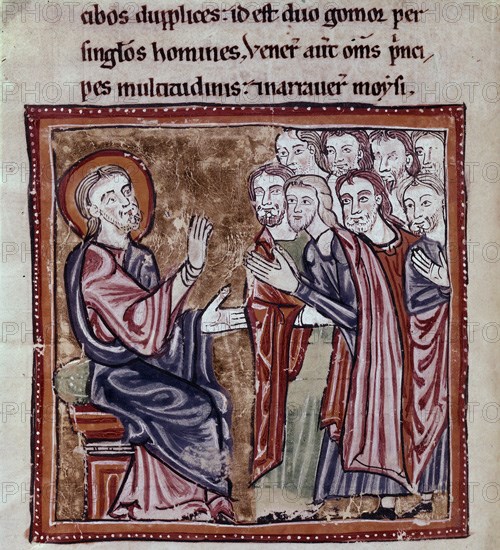 cibos dupplices: id est duo gomor per
singlos homines, Vener aut oms pnci
pes multitudinis: narrauer moysi.